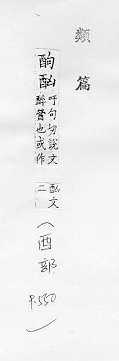 類篇
䣱酗吁句切說文
醉醟也或作
酗文
二
（酉部 P.550）